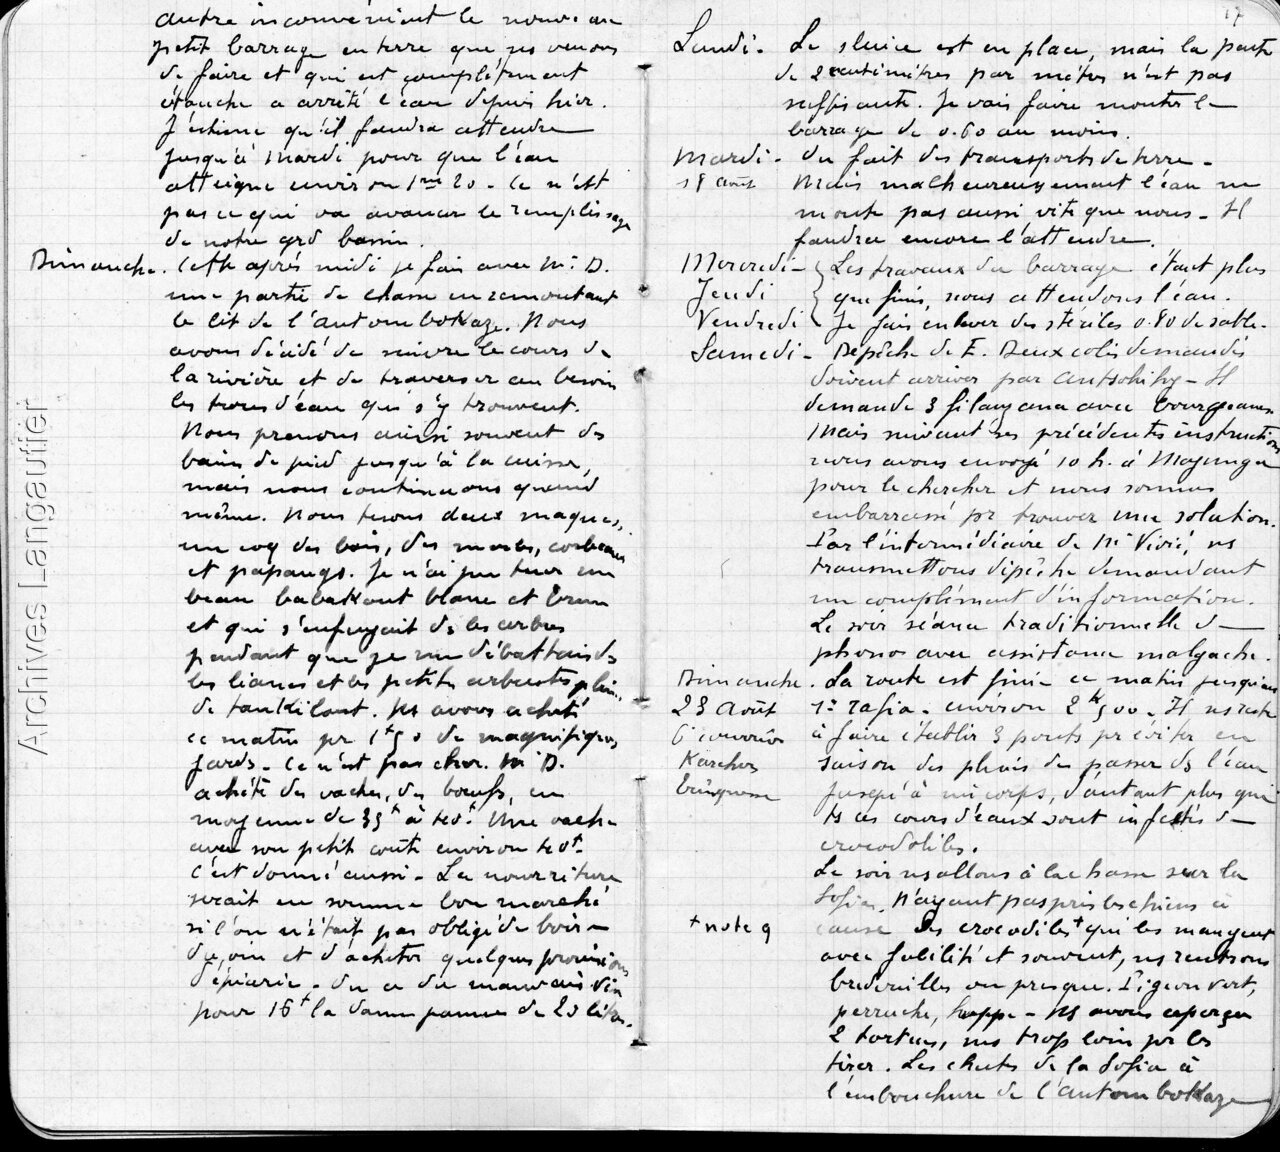 autre inconvénient le nouveau
petit barrage en terre que ns venons
de faire et qui est complètement
étanche a arrêté l'eau depuis hier.
J'estime qu'il faudra attendre
jusqu'à Mardi pour que l'eau
atteigne environ 1m 20 - Ce n'est
pas ce qui va avancer le remplissage
de notre grd bassin.
Dimanche. Cette après midi je fais avec Mr D.
une partie de chasse en remontant
le lit de l'Antombokaze. Nous
avons décidé de suivre le cours de
la rivière et de traverser au besoin
les trous d'eau qui s'y trouvent.
Nous prenons ainsi souvent des
bains de pied jusqu'à la cuisse,
mais nous continuons quand
même. Nous tuons deux maques,
un coq des bois, des merles, corbeaux
et papangs. Je n'ai pu tuer un
beau babakout blanc et brun
et qui s'enfuyait ds les arbres
pendant que je me débattais ds
les lianes et les petits arbustes pleins
de . Ns avons acheté
ce matin pr 1f50 de magnifiques
jards. Ce n'est pas cher. Mr D.
achète des vaches, des bœufs, en
moyenne de 35f à 40f. Une vache
avec son petit coûte environ 40f.
C'est donné aussi - La nourriture
serait en somme bon marché
si l'on n'était pas obligé de boire
du vin et d'acheter quelques provisions
d'épicerie. On a du mauvais vin
pour 16f la dame jeanne de 20 litres.
17
Lundi - Le sluice est en place, mais la pente
de 2 centimètres par mètres n'est pas
suffisante. Je vais faire monter le
barrage de 0.60 au moins.
Mardi - On fait des transports de terre -
18 août Mais malheureusement l'eau ne
monte pas aussi vite que nous - Il
faudra encore l'attendre.
Mercredi - Les travaux du barrage étant plus
Jeudi que finis, nous attendons l'eau.
Vendredi Je fais enlever des stériles 0.80 de sable.
Samedi - Dépêche de E. Deux colis demandés
doivent arriver par Antsohihy - Il
demande 3 filanzana avec bourjeanes
Mais suivant ses précédentes instructions
nous avons envoyé 10 h. à Majunga
pour le chercher et nous sommes
embarrassé pr trouver une solution.
Par l'intermédiaire de Mr Vivié, ns
transmettons dépêche demandant
un complément d'information.
Le soir séance traditionnelle de
phono avec assistance malgache.
Dimanche. La route est finie ce matin jusqu'au
23 Août 1er rafia - environ 2k500 - Il ns reste
6e courrier à faire établir 3 ponts pr éviter en
Karcher saison des pluies de passer ds l'eau
jusqu'à mi corps, d'autant plus que
ts ces cours d'eaux sont infestés de
crocodiles.
Le soir ns allons à la chasse sur la
Sofia. N'ayant pas pris les chiens à
+ note 9 cause des crocodiles+ qui les mangent
avec facilité et souvent, ns rentrons
bredouilles ou presque. Pigeon vert,
perruche, huppe - Ns avons aperçu
2 tortues, mais trop loin pr les
tirer. Les chutes de la Sofia à
l'embouchure de l'Antombokaze